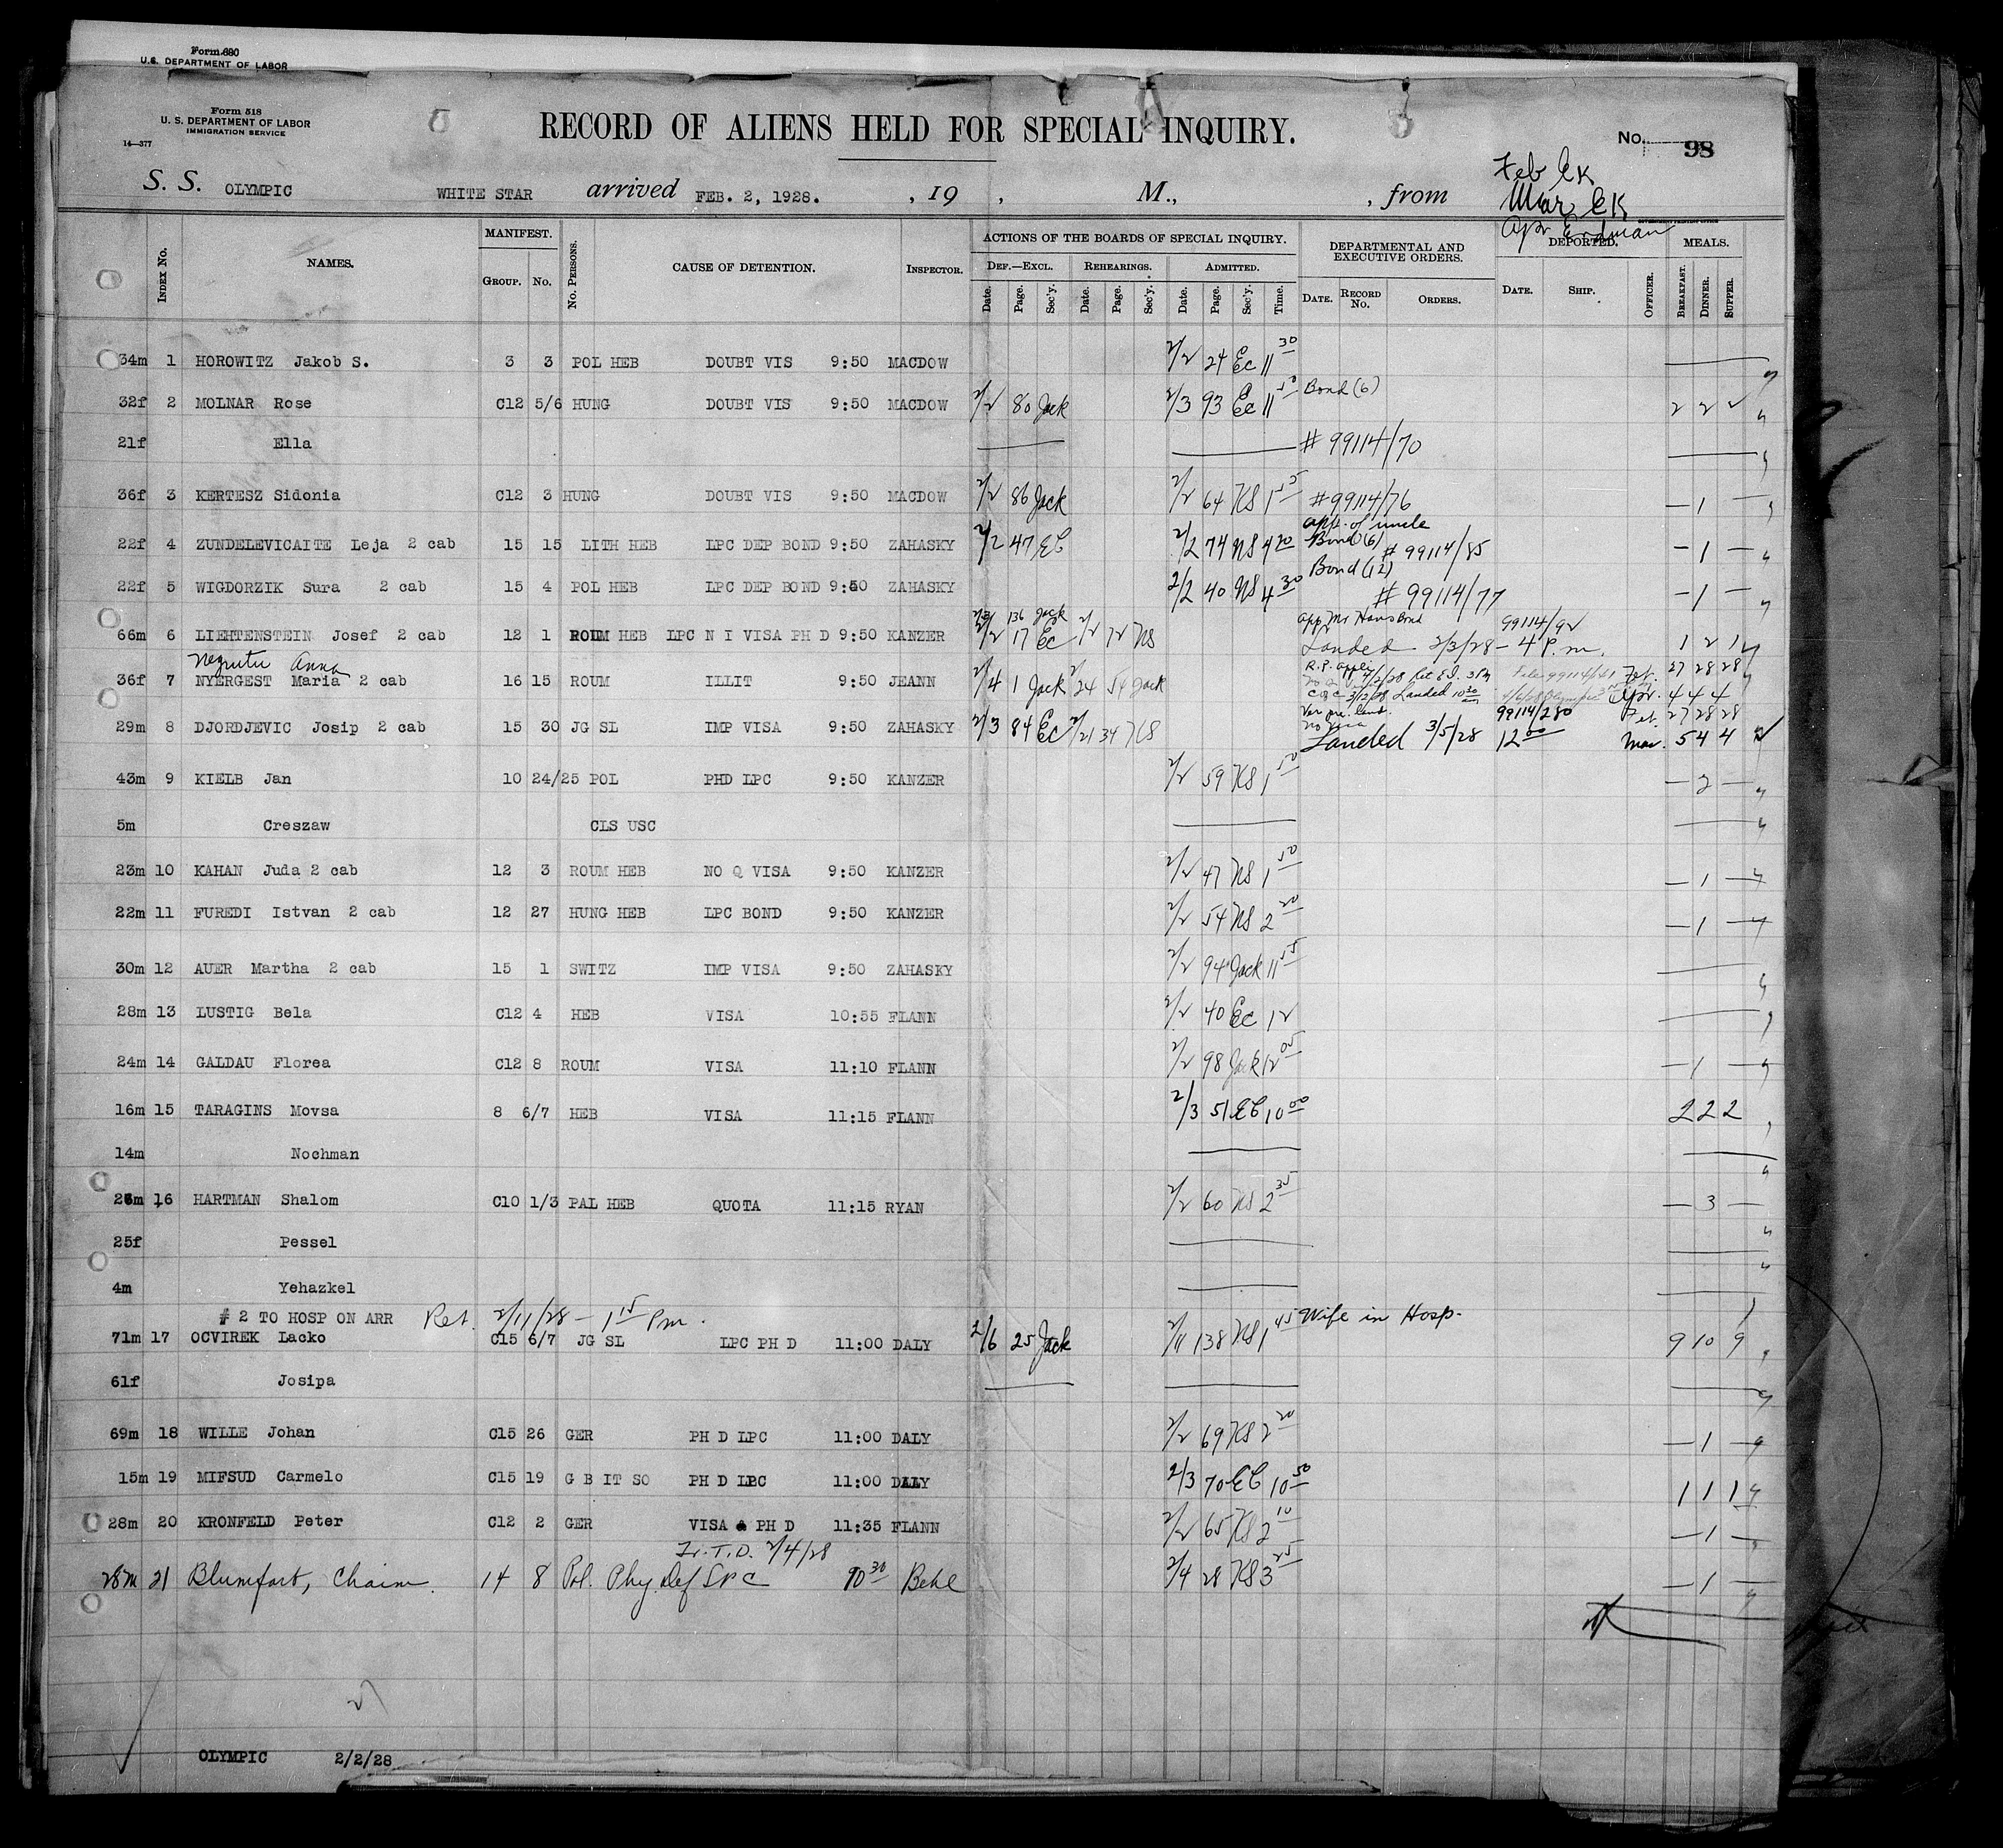 Form 680
U.S. DEPARTMENT OF LABOR
Form 518
U. S. DEPARTMENT OF LABOR
IMMIGRATION SERVICE
14—377
RECORD OF ALIENS HELD FOR SPECIAL INQUIRY.
No. 98
Feb EK
Mar EK
Apr Erdman
S. S. OLYMPIC WHITE STAR arrived FEB. 2, 1928. , 19 , M., , from
GOVERNMENT PRINTING OFFICE
INDEX NO. NAMES. MANIFEST. GROUP. NO. NO. PERSONS. CAUSE OF DETENTION. INSPECTOR. ACTIONS OF THE BOARDS OF SPECIAL INQUIRY. DEF.—EXCL. Date. Page. Sec'y. REHEARINGS. Date. Page. Sec'y. ADMITTED. Date. Page. Sec'y. Time. DEPARTMENTAL AND EXECUTIVE ORDERS. DATE. RECORD NO. ORDERS. DEPORTED. DATE. SHIP. OFFICER. MEALS. BREAKFAST. DINNER. SUPPER.
34m 1 HOROWITZ Jakob S. 3 3 POL HEB DOUBT VIS 9:50 MACDOW 2/2 24 Ec 11 30
32f 2 MOLNAR Rose C12 5/6 HUNG DOUBT VIS 9:50 MACDOW 2/2 80 Jack 2/3 93 Ec 11 50 Bond (6) 2 2 2
21f Ella # 99114/70
36f 3 KERTESZ Sidonia C12 3 HUNG DOUBT VIS 9:50 MACDOW 2/2 86 Jack 2/2 64 KS 1 55 # 99114/76 — 1 —
app. of uncle
22f 4 ZUNDELEVICAITE Leja 2 cab 15 15 LITH HEB LPC DEP BOND 9:50 ZAHASKY 2/2 47 EC 2/2 74 NS 4 20 Bond (6) # 99114/85 — 1 —
Bond (12)
22f 5 WIGDORZIK Sura 2 cab 15 4 POL HEB LPC DEP BOND 9:50 ZAHASKY 2/2 40 NS 4 30 # 99114/77 — 1 —
136 Jack 99114/92
66m 6 LIEHTENSTEIN Josef 2 cab 12 1 ROUM HEB LPC N I VISA PH D 9:50 KANZER 2/2 17 Ec 2/2 72 NS Landed 2/3/28 — 4 P.m. 1 2 1
Negrutu Anna Feb. 27 28 28
36f 7 NYERGEST Maria 2 cab 16 15 ROUM ILLIT 9:50 JEANN 2/4 1 Jack 2/24 54 Jack 3/2/28 Landed 10 30 Apr. 4 4 4
99114/280 Feb. 27 28 28
29m 8 DJORDJEVIC Josip 2 cab 15 30 JG SL IMP VISA 9:50 ZAHASKY 2/3 84 Ec 2/21 34 KS Landed 3/5/28 12 00 Mar. 5 4 4
43m 9 KIELB Jan 10 24/25 POL PHD LPC 9:50 KANZER 2/2 59 KS 1 50 — 2 —
5m Creszaw CLS USC
23m 10 KAHAN Juda 2 cab 12 3 ROUM HEB NO Q VISA 9:50 KANZER 2/2 47 NS 1 50 — 1 —
22m 11 FUREDI Istvan 2 cab 12 27 HUNG HEB LPC BOND 9:50 KANZER 2/2 54 NS 2 20 — 1 —
30m 12 AUER Martha 2 cab 15 1 SWITZ IMP VISA 9:50 ZAHASKY 2/2 94 Jack 11 55
28m 13 LUSTIG Bela C12 4 HEB VISA 10:55 FLANN 2/2 40 Ec 12
24m 14 GALDAU Florea C12 8 ROUM VISA 11:10 FLANN 2/2 98 Jack 12 05 — 1 —
16m 15 TARAGINS Movsa 8 6/7 HEB VISA 11:15 FLANN 2/3 51 EC 10 00 2 2 2
14m Nochman
16 HARTMAN Shalom C10 1/3 PAL HEB QUOTA 11:15 RYAN 2/2 60 KS 2 35 — 3 —
25f Pessel
4m Yehazkel
# 2 TO HOSP ON ARR Ret. 2/11/28 — 1 15 Pm.
71m 17 OCVIREK Lacko C15 6/7 JG SL LPC PH D 11:00 DALY 2/6 25 Jack 2/11 138 NS 1 45 Wife in Hosp. 9 10 9
61f Josipa
69m 18 WILLE Johan C15 26 GER PH D LPC 11:00 DALY 2/2 69 KS 2 20 — 1 —
15m 19 MIFSUD Carmelo C15 19 G B IT SO PH D LPC 11:00 DALY 2/3 70 EC 10 50 1 1 1
28m 20 KRONFELD Peter C12 2 GER VISA & PH D 11:35 FLANN 2/2 65 KS 2 10 — 1 —
Fr. T.D. 2/4/28
28m 21 Blumfart, Chaim. 14 8 Pol. Phy. Def LPC 10 30 Behl 2/4 28 KS 3 25 — 1 —
OLYMPIC 2/2/28